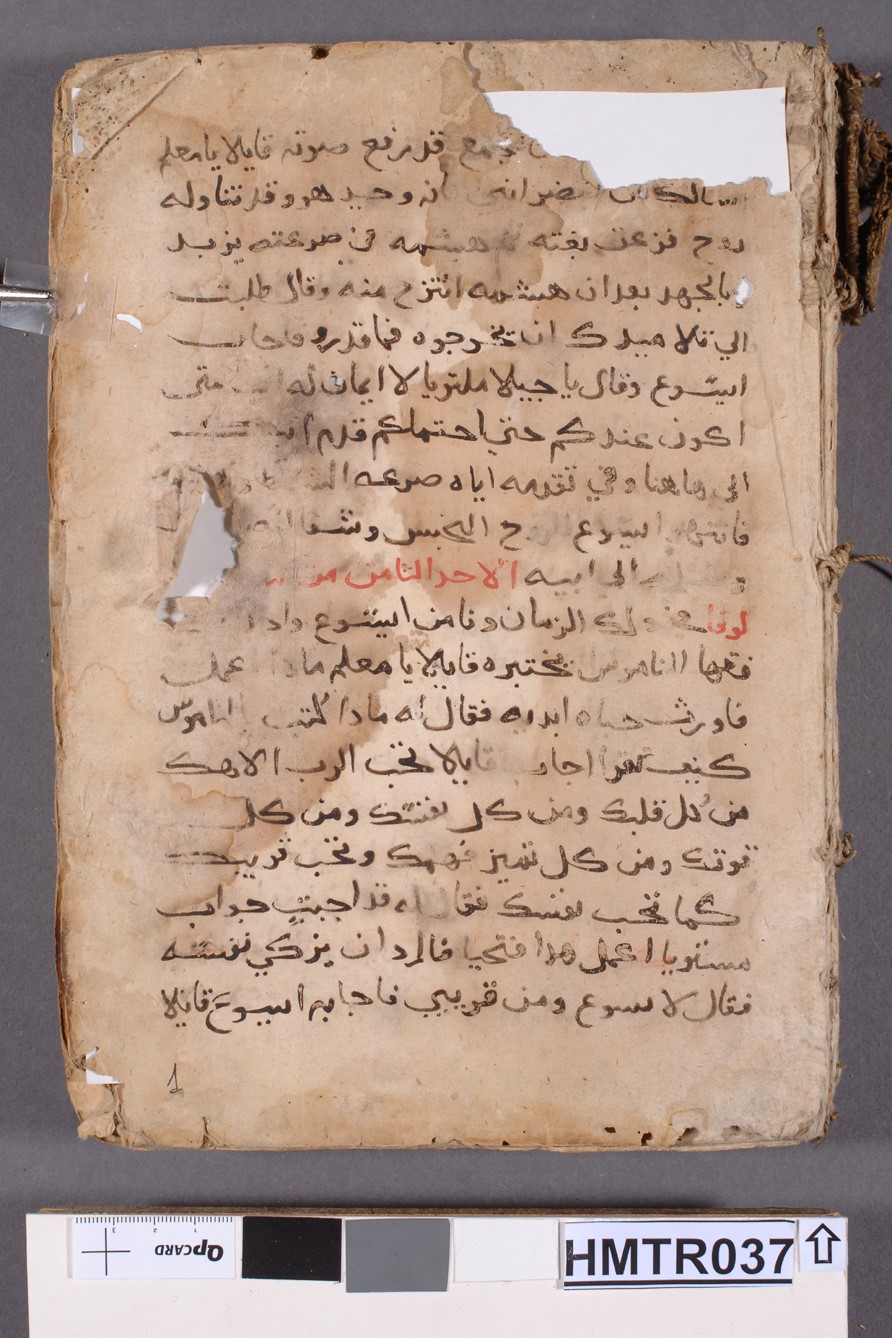 قد رفع صوته قايلا يا معلم
وحيد هو وقد تتاوله
روح فزعق بغته هيشمه في صرعته يزبد
بالجهد بعد ان هيشمه انتزح منه وقال طلبت
الي تلاميدك ان تخرجوه فما قدرو فاجاب
ايشوع وقال يا جيلا ملتويا لا ايمان له متى
اكون عندكم حتي احتملكم قدم
الى هاهنا وفي تقدمه اياه صرعه
ايشوع النجس وشفا
الي ابيه الاحد الثامن من
لوقا دلك الزمان دنا من ايشوع
فقها الناموس يختبره قايلا يا معلم عمل
فاورث حياه ابديه فقال له مادا كتب الناموس
كيف تقرا اجاب قايلا تحب الرب الاهك
من كل قلبك ومن كل نفسك ومن كل
قوتك ومن كل تميز فهمك وتحب قريبك
كما تحب نفسك فقال له قد اجبت جواب
مستويا اعمل هدا فتحيا فاراد ان يزكي نفسه
فقال لايسوع ومن قريبي فاجابه ايسوع قايلا
1
QPCARD
1 2 3
HMTR037